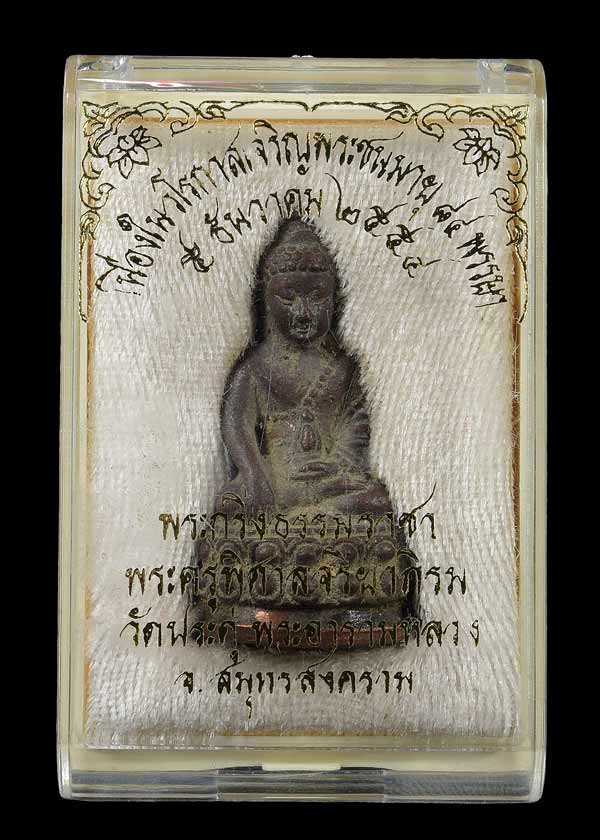 เนื่องในวโรกาสเจริญพระชนมายุ ๘๔ พรรษา
๕ ธันวาคม ๒๕๕๔
พระกริ่งธรรมราชา
พระครูพิศาลจริยาภิรม
วัดประดู่ พระอารามหลวง
จ. สมุทรสงคราม